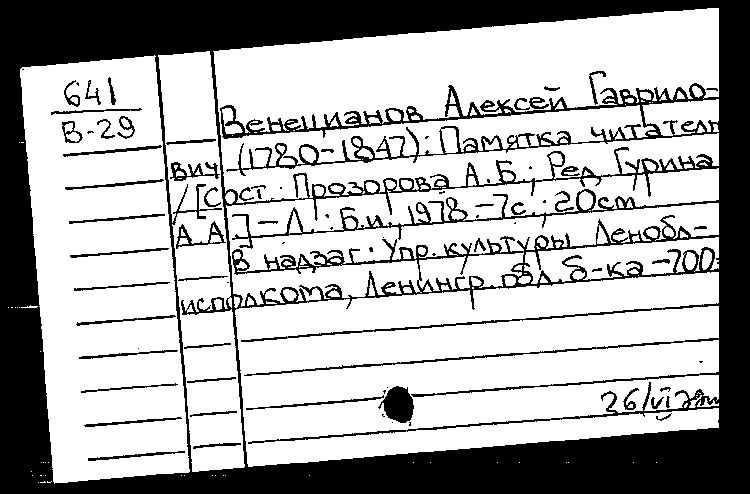 641
В-29
Венецианов Алексей Гаврило-
вич (1780-1847): Памятка читател
/[Сост.: Прозорова А.Б.; Ред. Гурина
А.А.].-Л.: Б.и., 1978.-7с.; 20см.
В надзаг: Упр. культуры Ленобл-
исполкома, Ленингр. обл. б-ка -700
26/VI